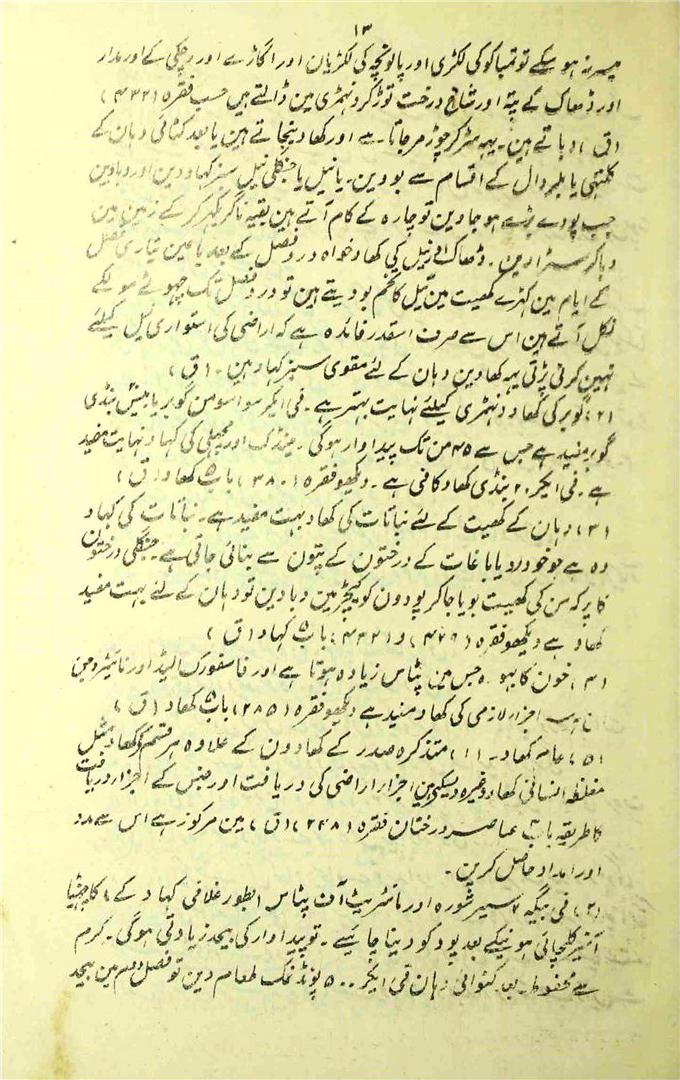 ۱۳
میسر نہ ہو سکے تو تمباکو کی لکڑی اور پالونچہ کی لکڑیان اور اگاڑے اور رچکی کے اور مدار
اور ڈھاک کے پتہ اور شاخ درخت توڑ کر دنہڑی مین ڈالتے ہین حسب فقرہ (۴۳۲)
(ق) دباتے ہین۔ یہہ سڑ کر چوڑ مر جاتا۔ ہے اور کھاد بنجاتے ہین یا بعد کٹائی دہان کے
کلتہی یا بلر دال کے اقسام سے بو دین۔ یا نیل یا جنگلی نیل سبز کہاد دین اور دباوین
جب پودے بڑے ہو جاوین تو چارہ کے کام آتے ہین بقیہ ناگر بکہر کر کے زمین مین
دبا کر سڑادین۔ ڈھاک اور نیل کی کھاد خواہ درد فصل کے بعد یا عین تیاری فصل
کے ایام مین کہڑے کھیت مین نیل کا تخم بو دیتے ہین تو درد فصل تک چہوٹے مولکے
نکل آتے ہین اس سے صرف اسقدر فائدہ ہے کہ اراضی کی استواری نیل کیلئے
نہین کرنی پڑتی یہہ کھادین دہان کے لئے مقوی سبز کہاد ہین۔ (ق)
(۲) گوبر کی کھاد دنہڑی کیلئے نہایت بہتر ہے۔ فی ایکر سوا سو من گوبر یا بیس بنڈی
گوبر مفید ہے جس سے ۴۵ من تک پیداوار ہوگی۔ مینڈک اور مچہلی کی کہاد نہایت مفید
ہے۔ فی ایکر ۲۰ بنڈی کھاد کافی ہے۔ دیکھو فقرہ (۳۸۰) باب ۵ کھاد (ق)
(۳) دہان کے کھیت کے لئے نباتات کی کھاد بہت مفید ہے۔ نباتات کی کہاد
وہ ہے جو خودرو یا باغات کے درختون کے پتون سے بنائی جاتی ہے۔ جنگلی درختون
کا پر کہ سن کی کھیت بویا جا کر پودون کو کیچڑ مین دبا دین تو دہان کے لئے بہت مفید
کھاد ہے دیکھو فقرہ (۴۲۹) و (۴۳۲) باب ۵ کہاد (ق)
(۴) خون کا جس مین پٹاس زیادہ ہوتا ہے اور فاسفورک ایسڈ اور نائیٹروجن
اجزاء لازمی کی کھاد مفید ہے دیکھو فقرہ (۲۸۵) باب ۵ کھاد (ق)
(۵) عام کھاد۔ (۱) متذکرہ صدر کے کھادون کے علاوہ ہر قسم کی کھاد مثل
مغلظہ انسانی کھاد وغیرہ اجزاء اراضی کی دریافت اور جنس کے اجزاء دریافت
کا طریقہ باب عناصر درختان فقرہ (۲۴۸) (ق) مین مرکوز ہے اس سے مدد
اور امداد حاصل کرین۔
(۲) فی بیگہ ۷ سیر شورہ اور نائٹریٹ آف پٹاس بطور غلافی کہاد کے
ہونیکے بعد پود کو دینا چاہئیے۔ تو پیداوار کی بیحد زیادتی ہوگی۔ کرم
سے محفوظ۔ بعد کٹوائی دہان فی ایکر ۵۰۰ پونڈ نمک طعام دین تو فصل دوم مین بیحد